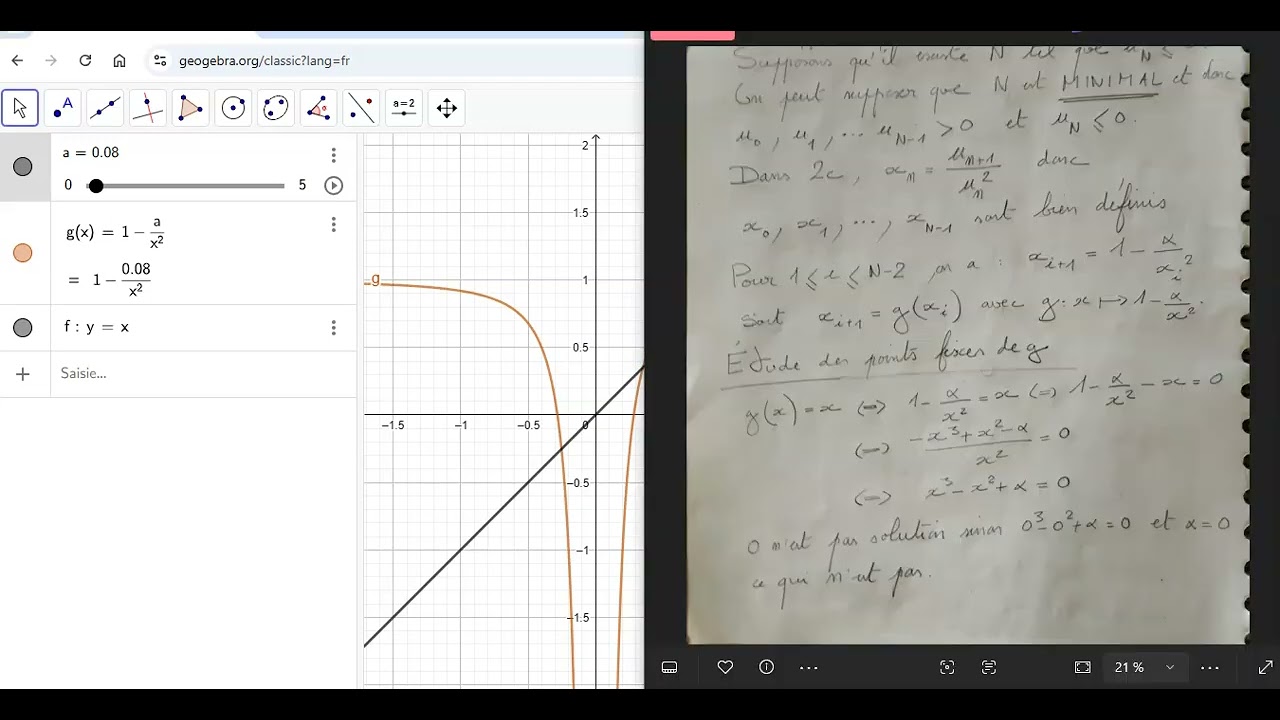 geogebra.org/classic?lang=fr
A
a=2
a = 0.08
0
5
g(x) = 1 − a/x²
= 1 − 0.08/x²
f : y = x
Saisie...
g
2
1.5
1
0.5
−1.5
−1
−0.5
0
−0.5
−1
−1.5
Supposons qu'il existe N tel que u_N ≤
On peut supposer que N est MINIMAL et donc
u_0, u_1, ... u_{N-1} > 0 et u_N ≤ 0.
Dans 2c, x_n = u_{n+1}/u_n² donc
x_0, x_1, ..., x_{N-1} sont bien définis
Pour 1 ≤ i ≤ N-2 on a : x_{i+1} = 1 - α/x_i²
soit x_{i+1} = g(x_i) avec g: x ↦ 1 - α/x².
Étude des points fixes de g
g(x) = x (=) 1 - α/x² = x (=) 1 - α/x² - x = 0
(=) (-x³ + x² - α)/x² = 0
(=) x³ - x² + α = 0
0 n'est pas solution sinon 0³ - 0² + α = 0 et α = 0
ce qui n'est pas.
21 %